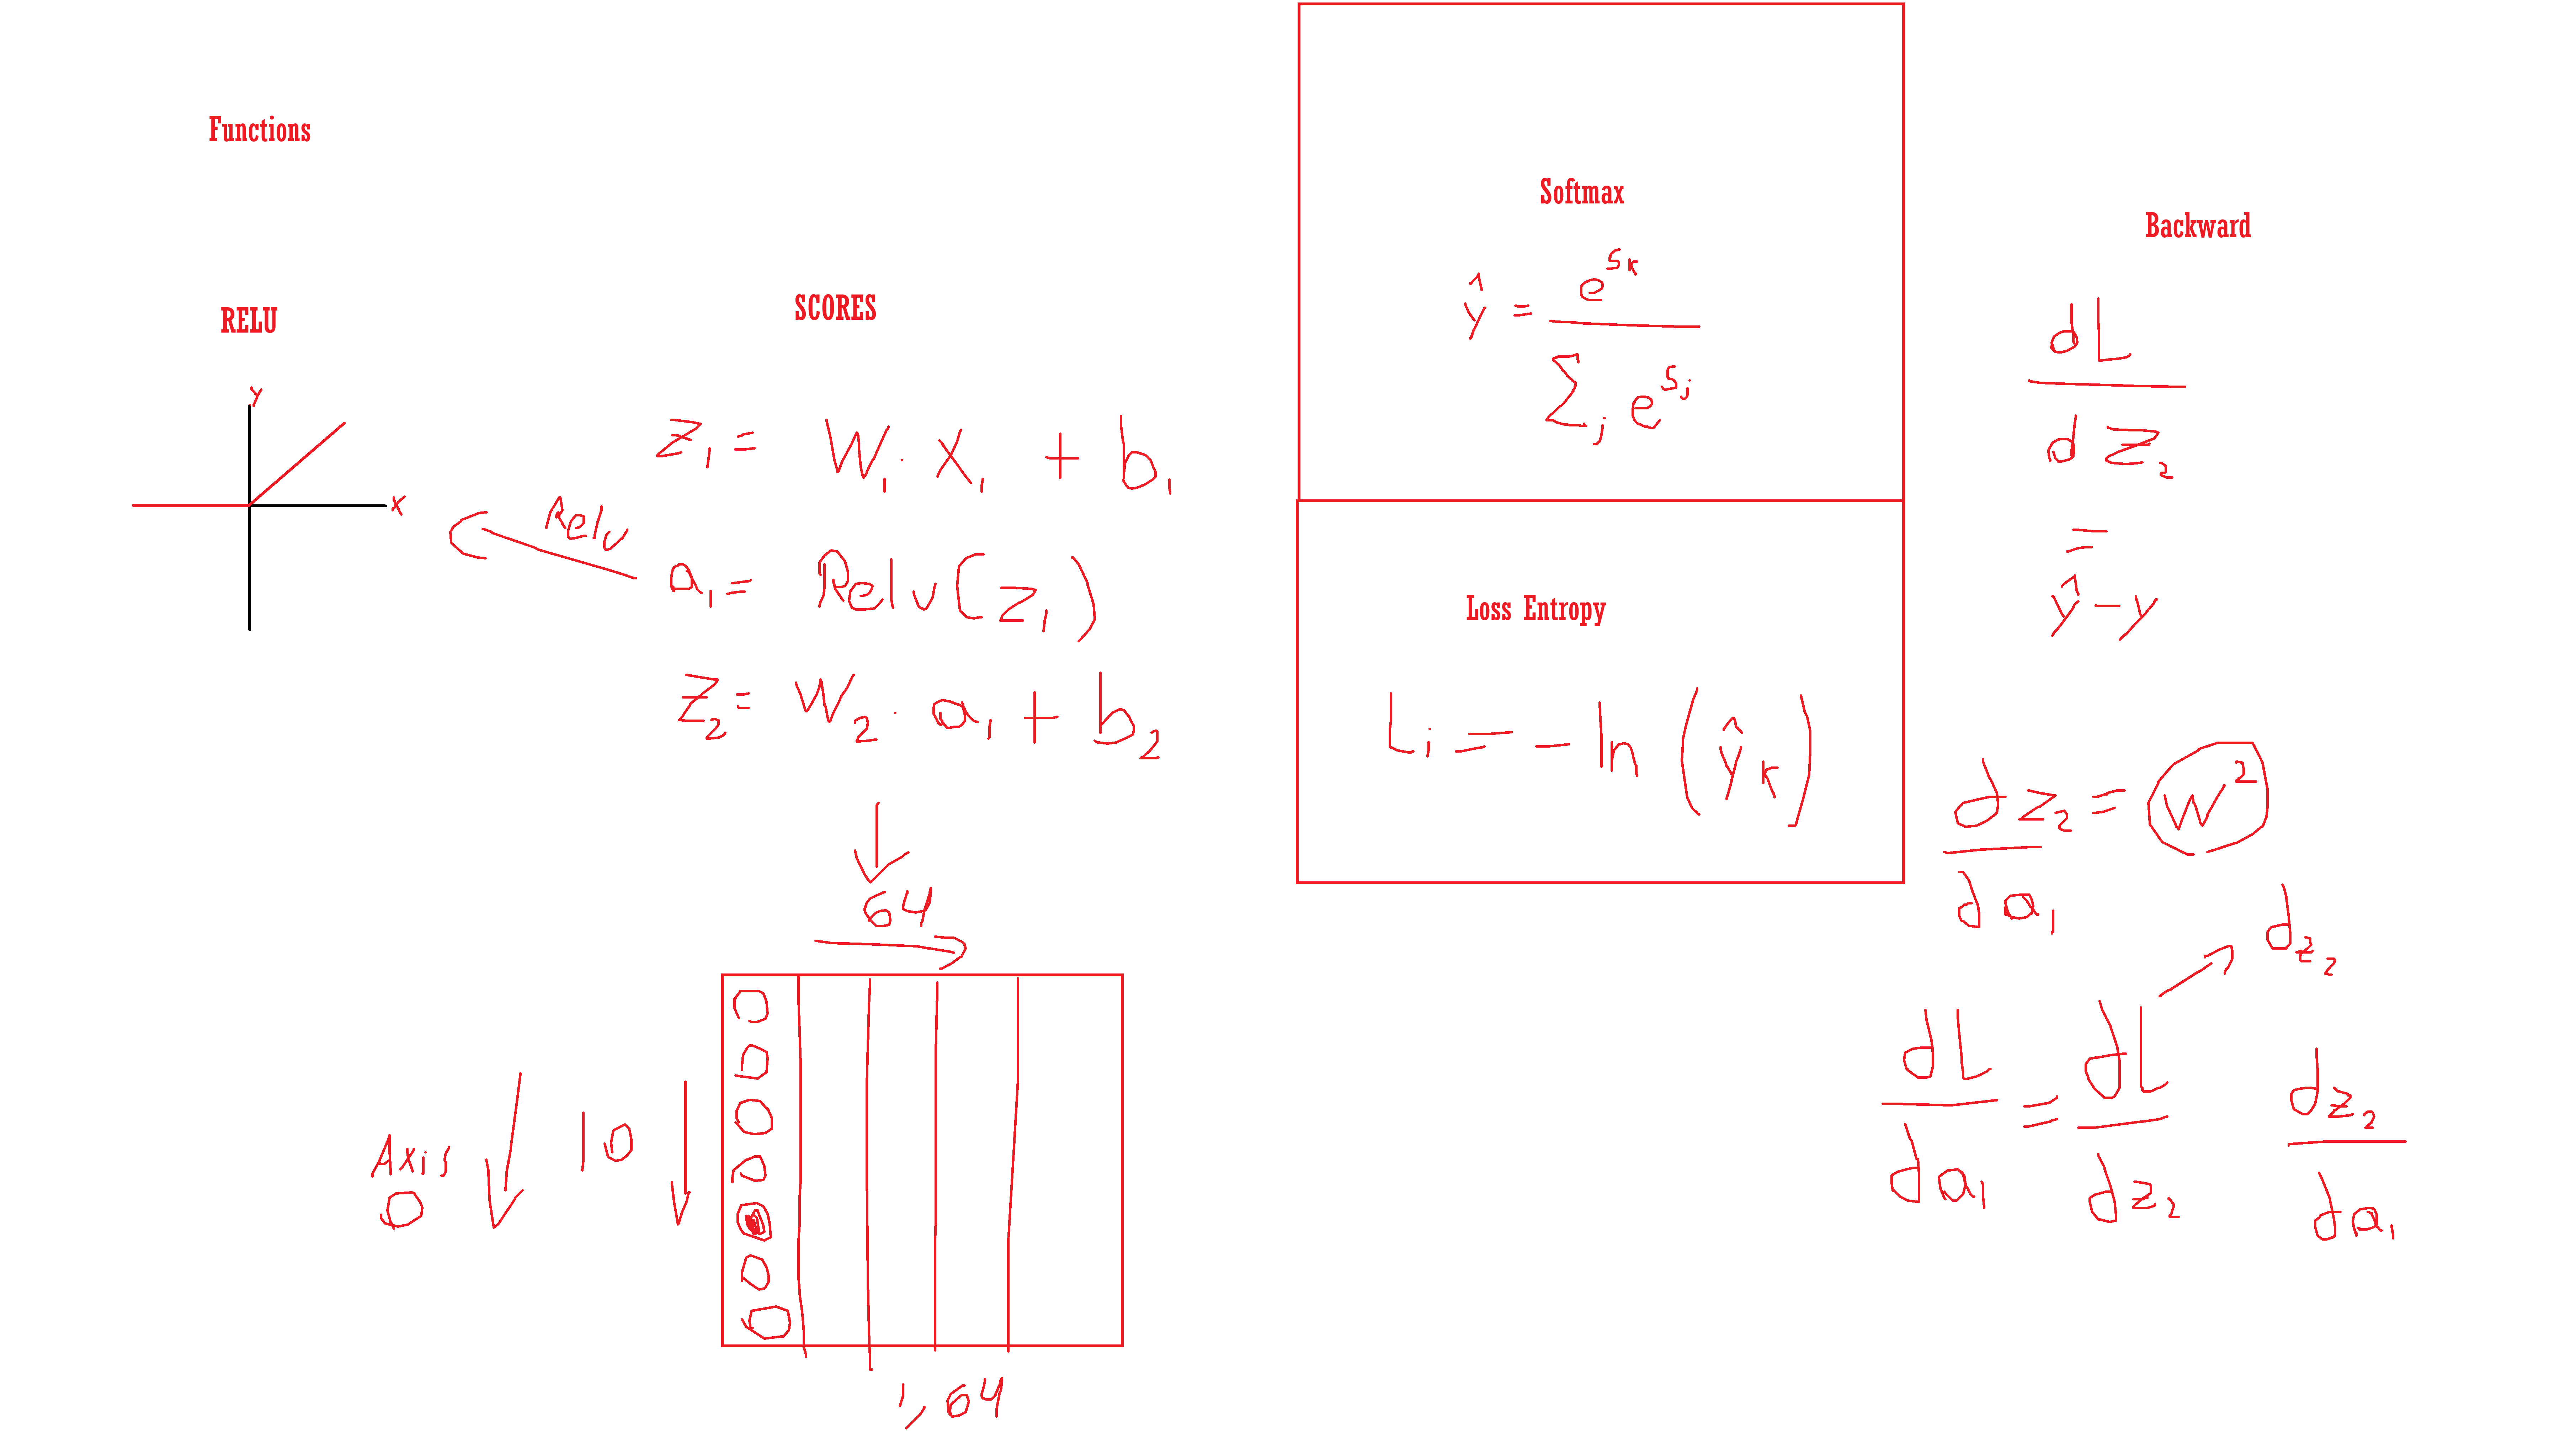 Functions
RELU
y
x
Relu
SCORES
z₁ = W₁ · X₁ + b₁
a₁ = Relu(z₁)
z₂ = W₂ · a₁ + b₂
64
Axis
0
10
1,64
Softmax
ŷ = e^{s_k} / ∑_j e^{s_j}
Loss Entropy
Li = - ln (ŷ_k)
Backward
dL / dz₂
=
ŷ - y
dz₂ / da₁ = W²
dz₂
dL / da₁ = dL / dz₂ dz₂ / da₁